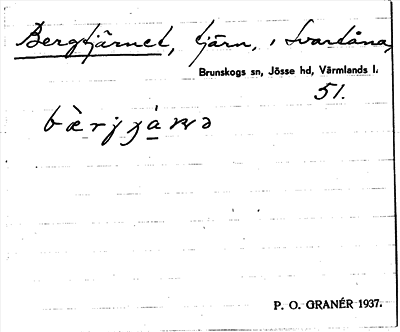 Bergtjärnet, tjärn, i Svartåna,
Brunskogs sn, Jösse hd, Värmlands l.
51.
P. O. GRANÉR 1937.